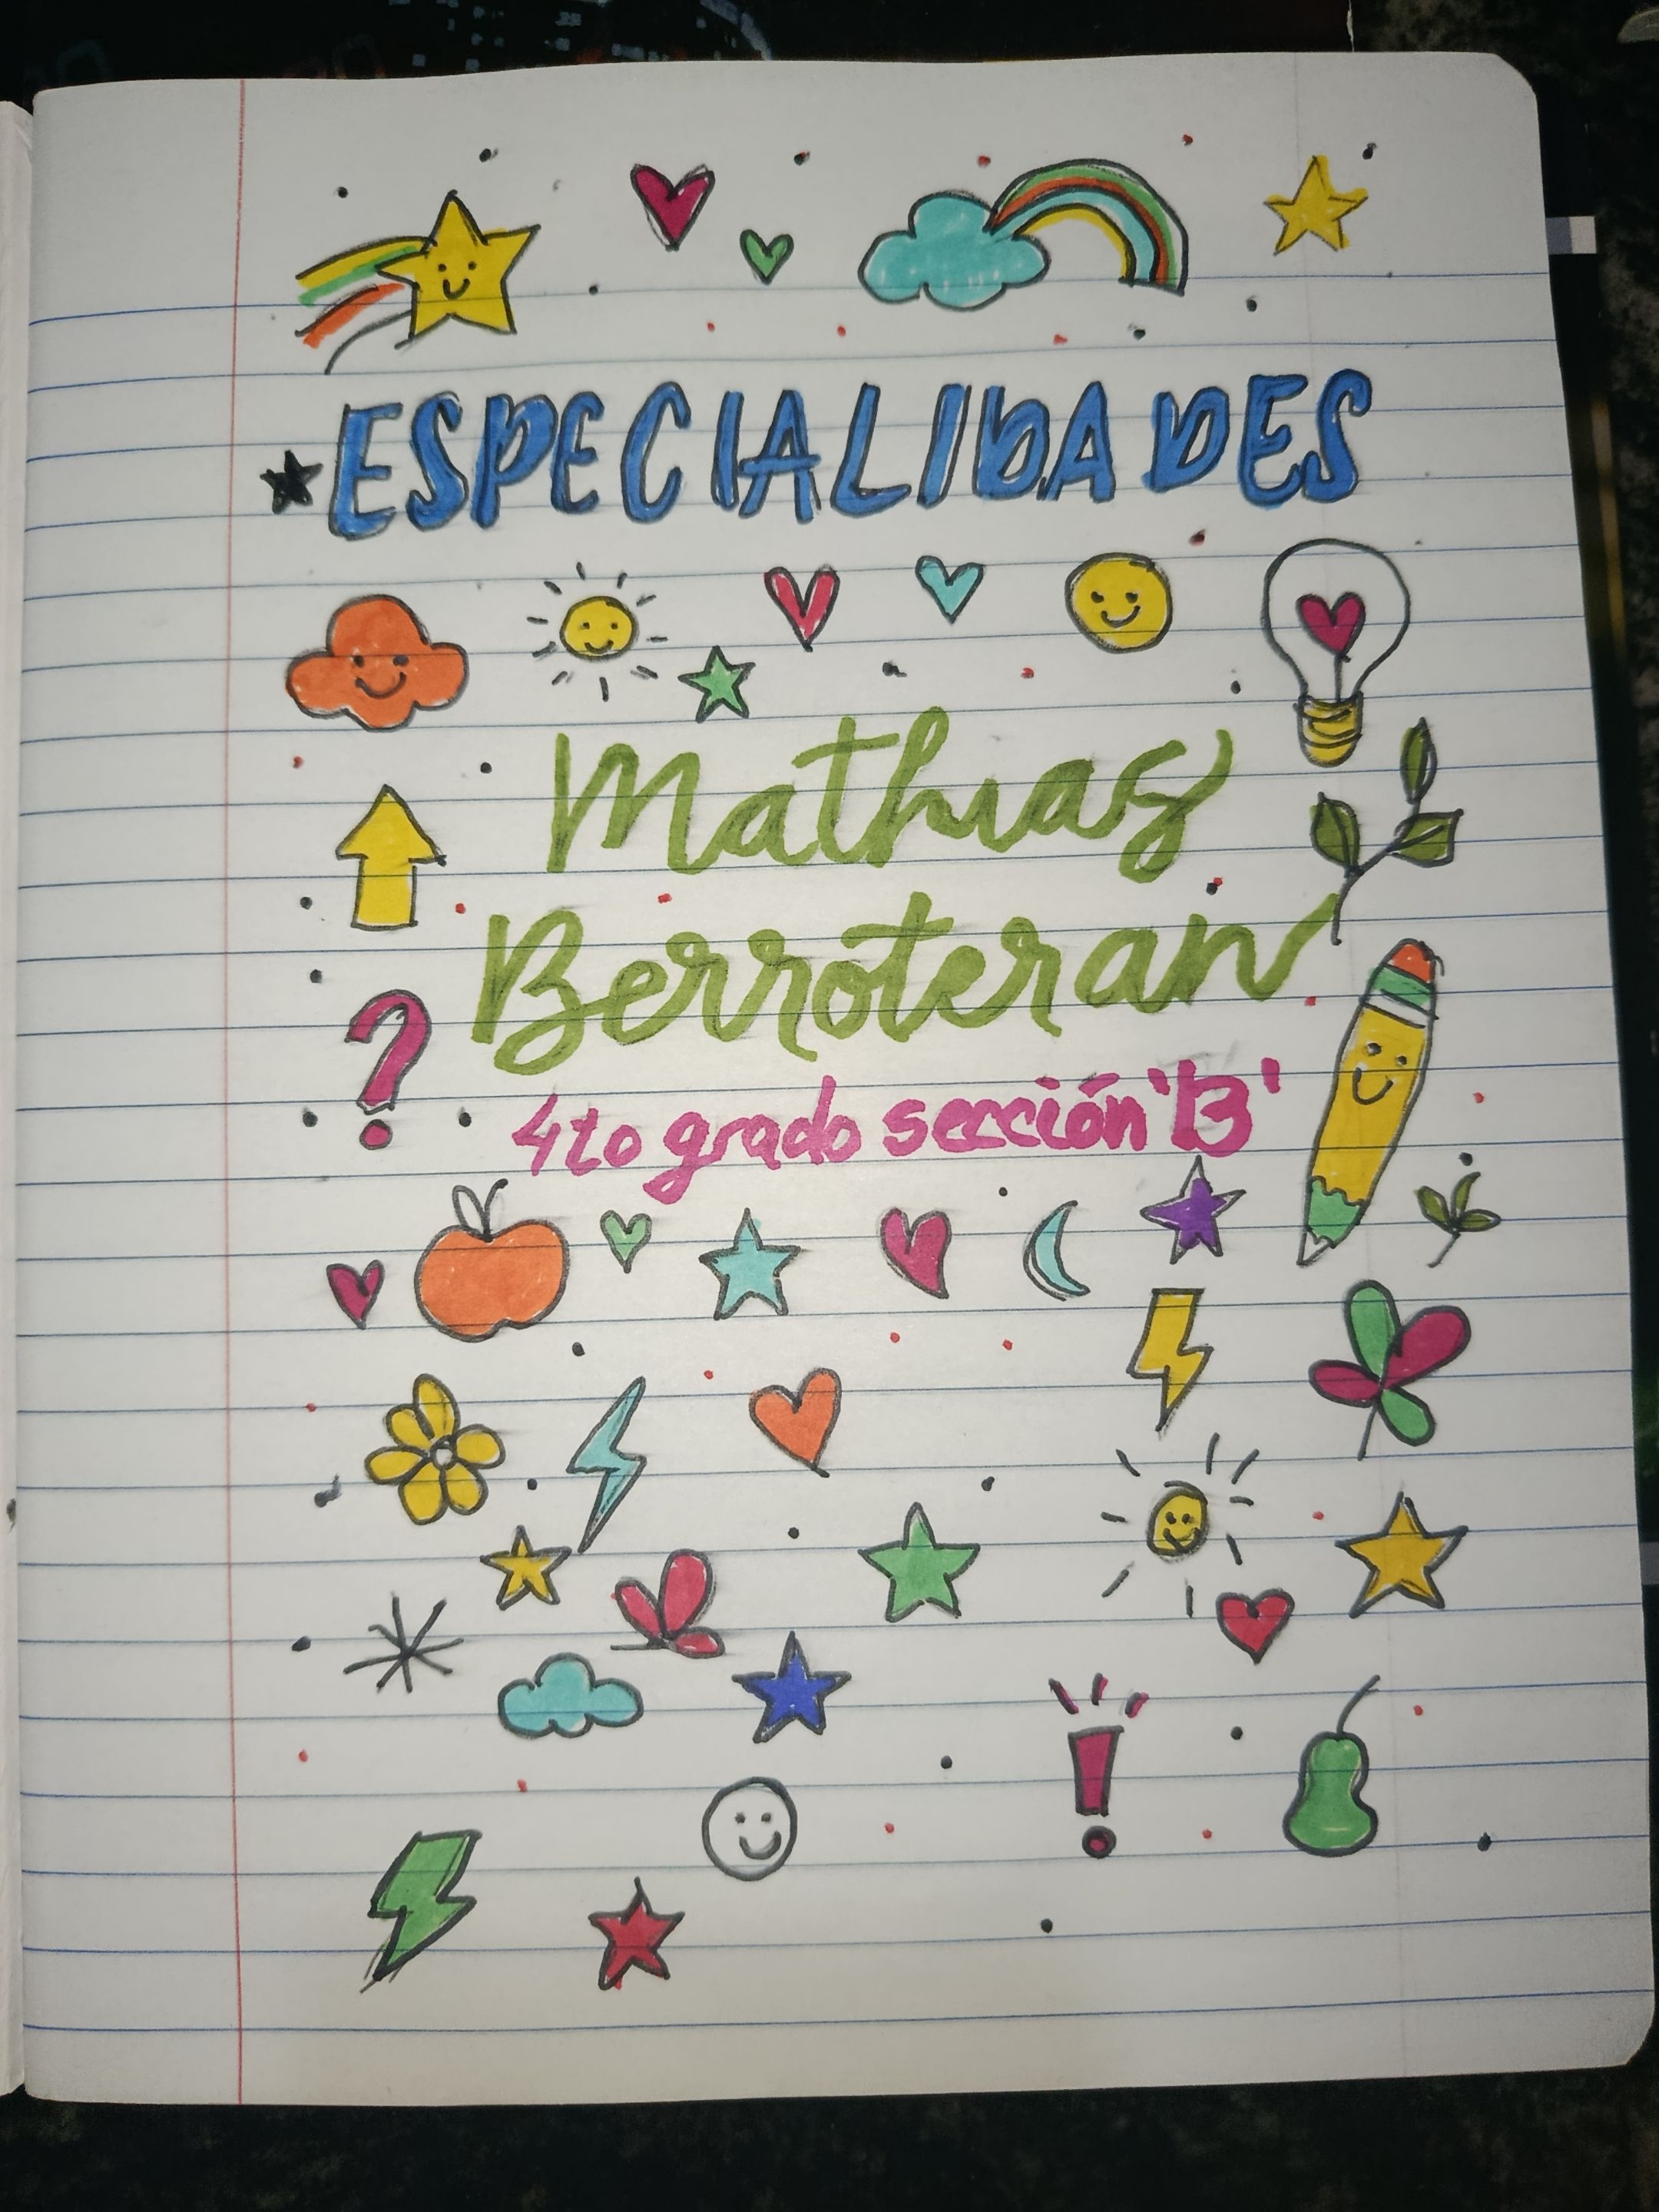 ESPECIALIDADES
Mathias
Berroteran
4to grado sección 'B'